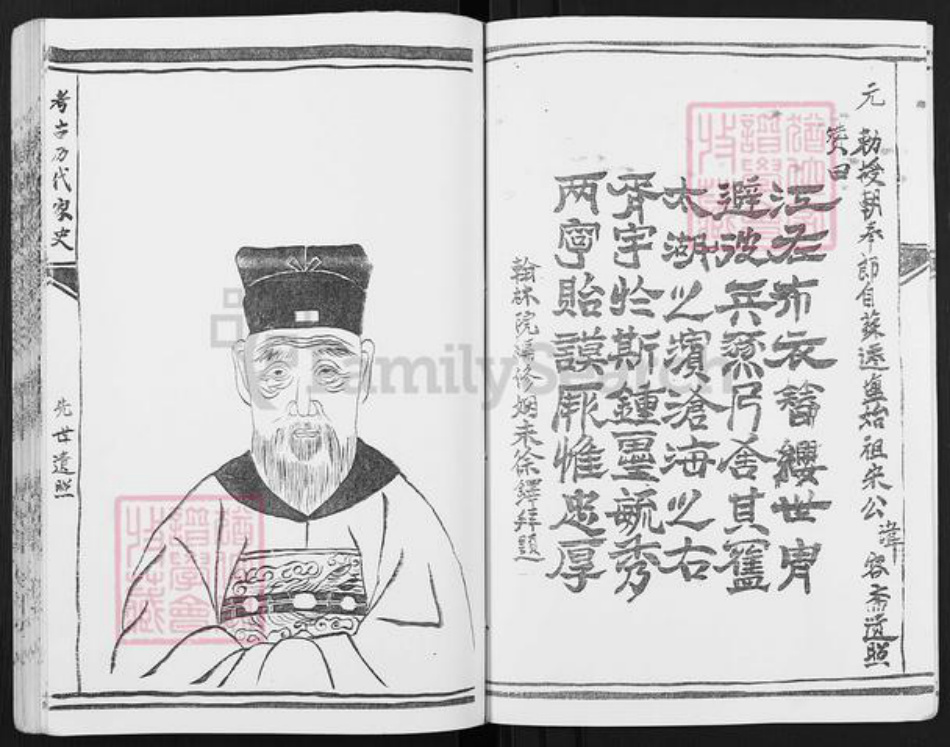 元 勅授朝奉郎自蘇遷輿始祖宋公諱容斎遺照
賛曰
江左布衣簪纓世胄
避波兵燹乃舍其舊
太湖之濱滄海之右
胥宇於斯鍾靈毓秀
两寧貽謨厥惟忠厚
翰林院編修姻末徐鐸拜題
考古历代家史
先世遺照
FamilySearch